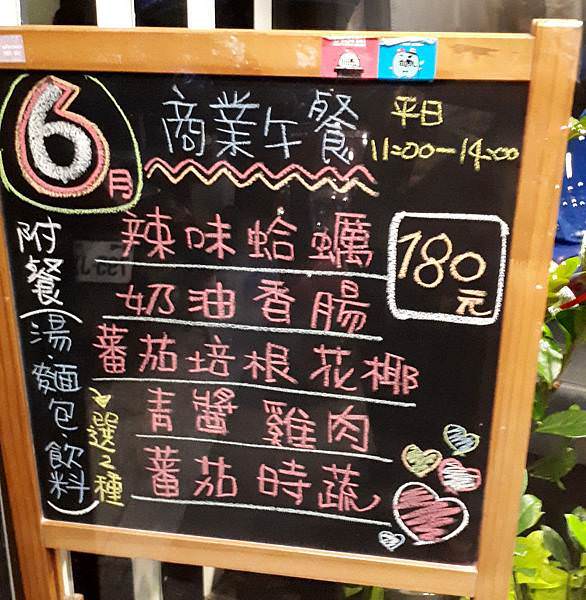 6月
商業午餐
平日
11:00-14:00
180元
辣味蛤蠣
奶油香腸
蕃茄培根花椰
青醬雞肉
蕃茄時蔬
附餐(湯.麵包.飲料)
選2種